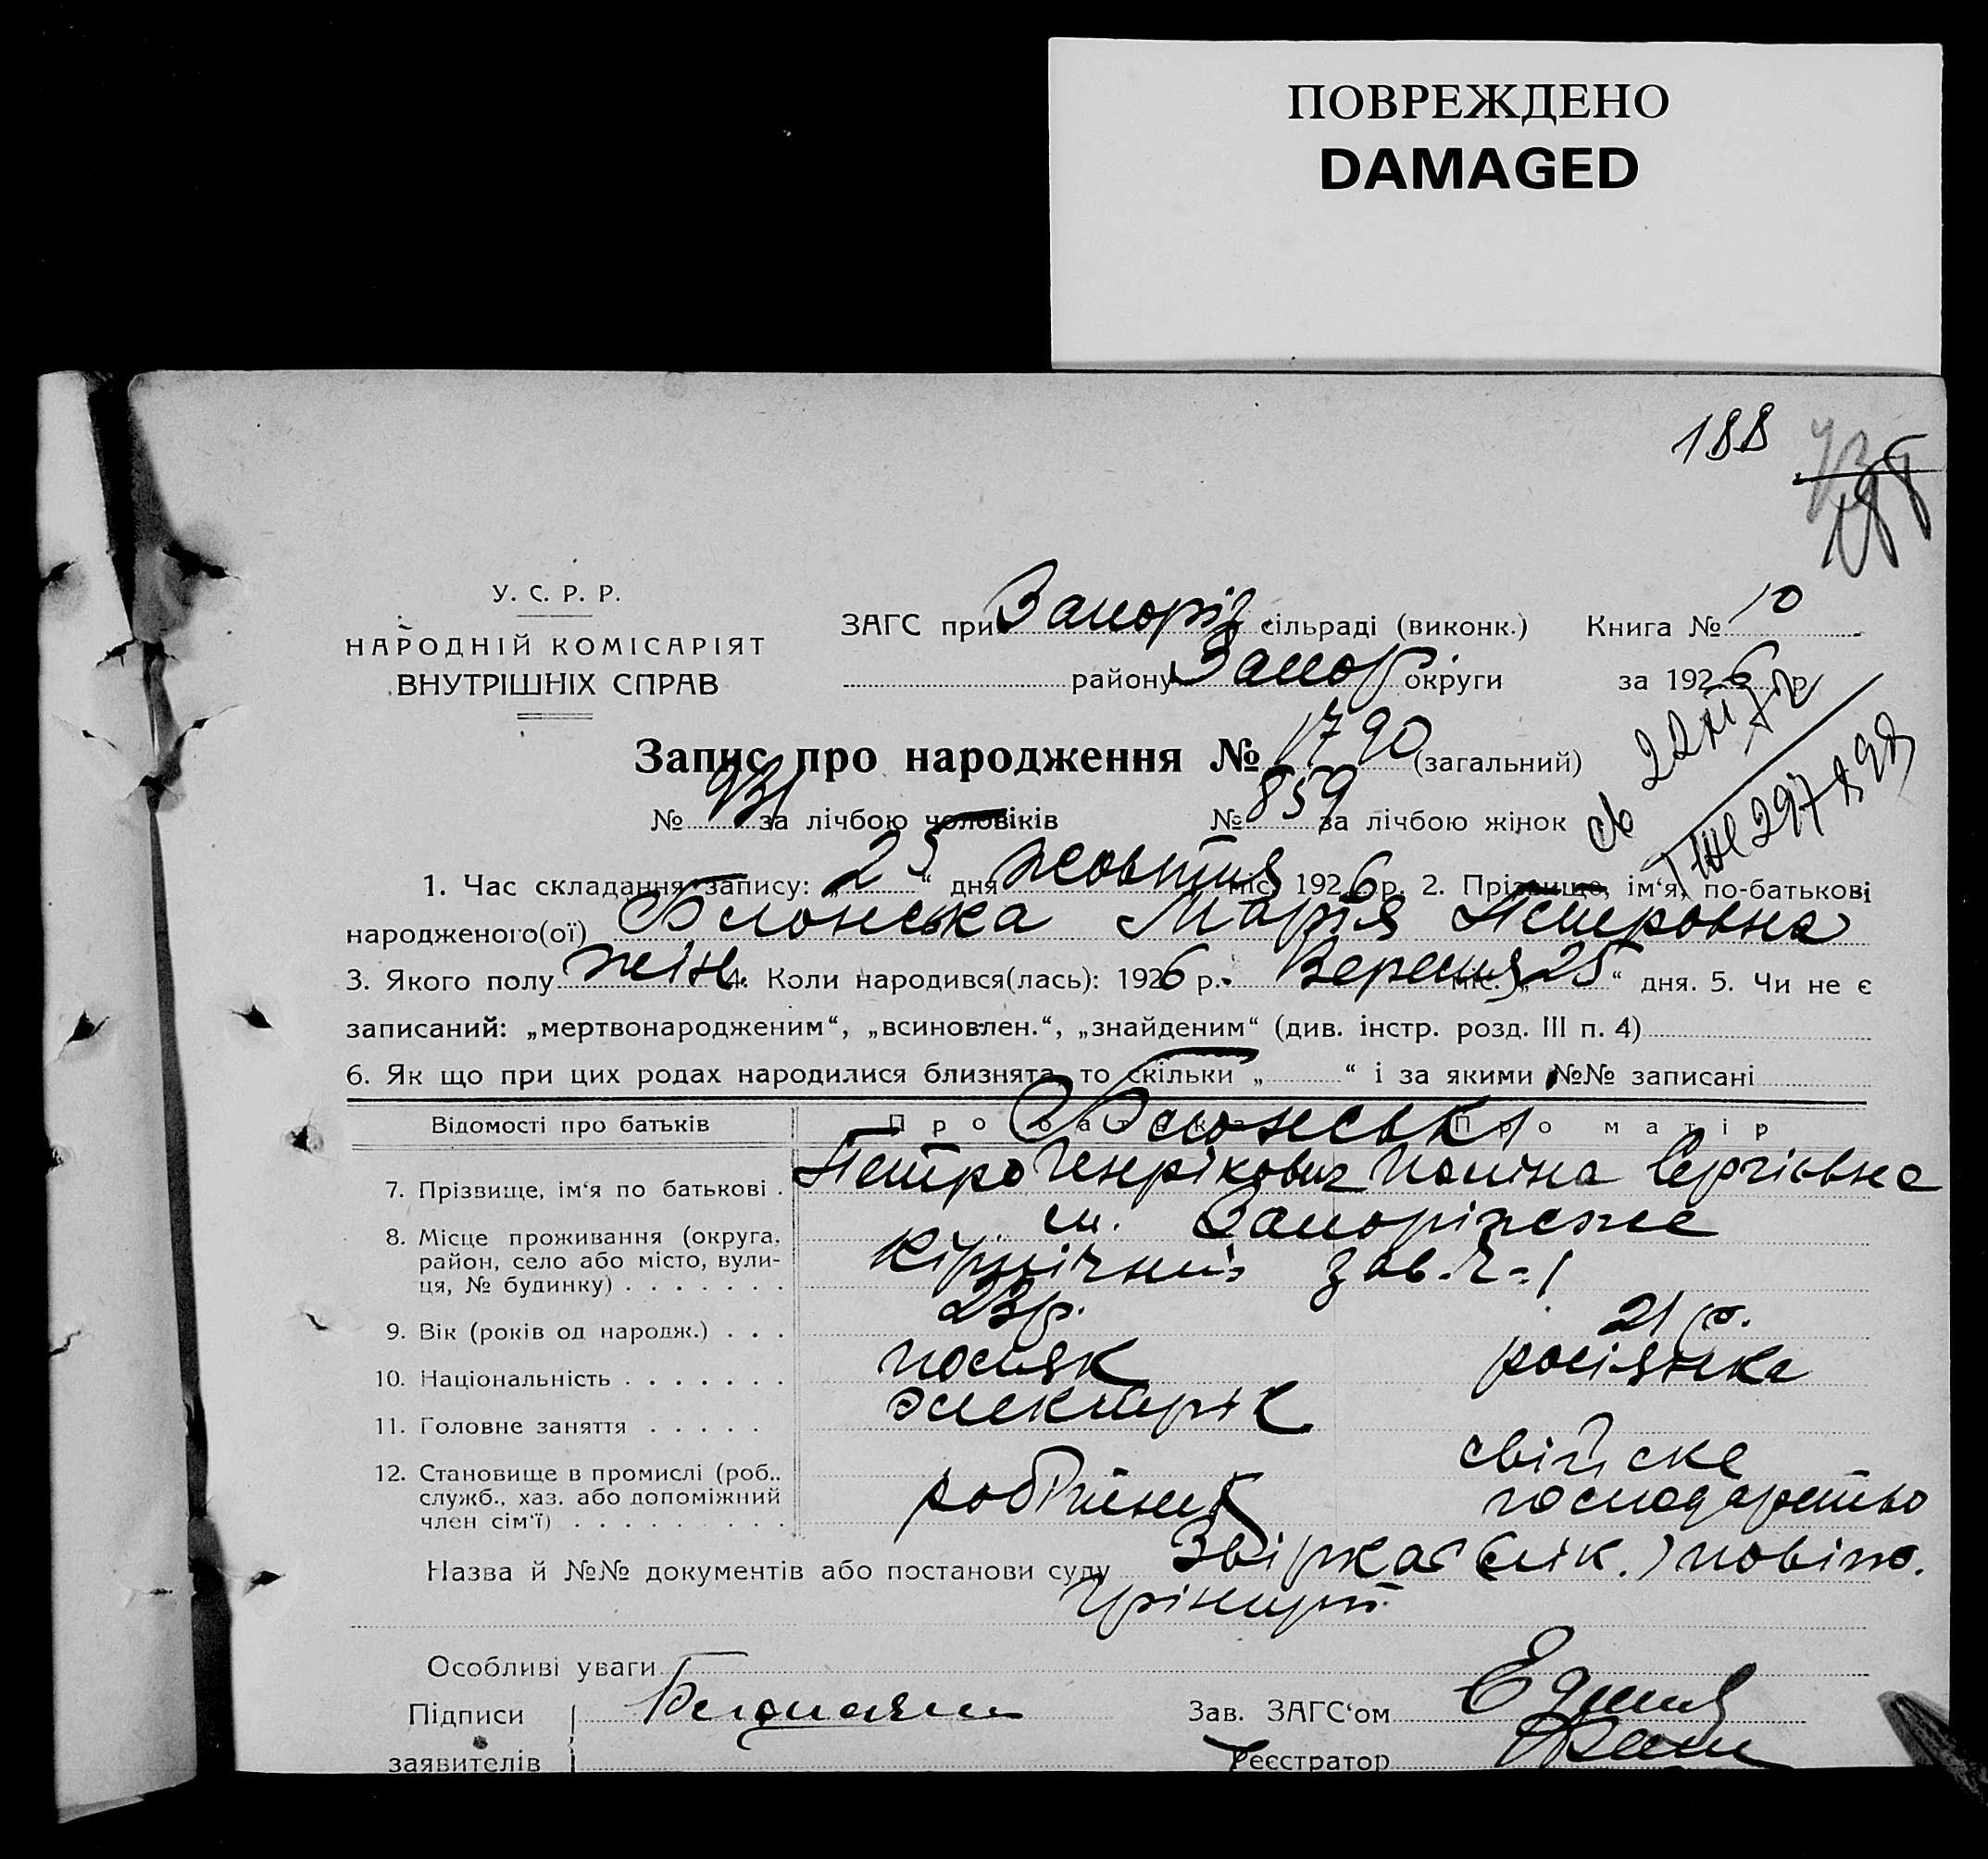 ПОВРЕЖДЕНО
DAMAGED
188
У. С. Р. Р.
НАРОДНІЙ КОМІСАРІЯТ
ВНУТРІШНІХ СПРАВ
ЗАГС при Запоріз. сільраді (виконк.) Книга № 10
району Запор округи за 1926 р.
Запис про народження № 1790 (загальний)
№ 931 за лічбою чоловіків № 859 за лічбою жінок
1. Час складання запису: „25“ дня жовтня міс. 1926 р. 2. Прізвище, ім‘я, по-батькові
народженого(ої) Блонська Марія Петровна
3. Якого полу жін. 4. Коли народився(лась): 1926 р. Вересня міс. „25“ дня. 5. Чи не є
записаний: „мертвонародженим“, „всиновлен.“, „знайденим“ (див. інстр. розд. III п. 4)
6. Як що при цих родах народилися близнята, то скільки „ “ і за якими №№ записані
Відомості про батьків Про батька Про матір
Блонські
7. Прізвище, ім‘я по батькові . Петро Генрікович Поліна Сергієвна
8. Місце проживання (округа, район, село або місто, вулиця, № будинку) м. Запоріжже
кірпічний зав. 1
9. Вік (років од народж.) . . . 23 р. 21 р.
10. Національність . . . . . . . поляк росіянка
11. Головне заняття . . . . . электрік
12. Становище в промислі (роб., служб., хаз. або допоміжний член сім‘ї) робітник свійске господарство
Назва й №№ документів або постанови суду
Особливі уваги
Підписи
заявителів
Зав. ЗАГС‘ом
Реєстратор